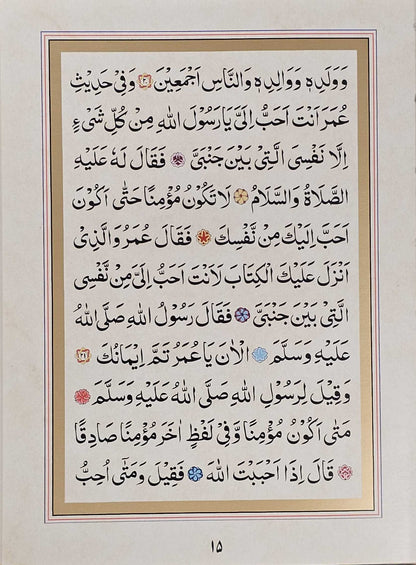 وَوَلَدِهِ وَوَالِدِهِ وَالنَّاسِ اَجْمَعِيْنَ ٢٠ وَفِيْ حَدِيْثِ
عُمَرَ اَنْتَ اَحَبُّ اِلَيَّ يَا رَسُوْلَ اللهِ مِنْ كُلِّ شَيْءٍ
اِلَّا نَفْسِيَ الَّتِيْ بَيْنَ جَنْبَيَّ فَقَالَ لَهٗ عَلَيْهِ
الصَّلَاةُ وَالسَّلَامُ لَا تَكُوْنُ مُؤْمِنًا حَتّٰى اَكُوْنَ
اَحَبَّ اِلَيْكَ مِنْ نَّفْسِكَ فَقَالَ عُمَرُ وَالَّذِيْ
اَنْزَلَ عَلَيْكَ الْكِتَابَ لَاَنْتَ اَحَبُّ اِلَيَّ مِنْ نَّفْسِي
الَّتِيْ بَيْنَ جَنْبَيَّ فَقَالَ رَسُوْلُ اللهِ صَلَّى اللهُ
عَلَيْهِ وَسَلَّمَ اَلْاٰنَ يَا عُمَرُ تَمَّ اِيْمَانُكَ ٢١
وَقِيْلَ لِرَسُوْلِ اللهِ صَلَّى اللهُ عَلَيْهِ وَسَلَّمَ
مَتٰى اَكُوْنُ مُؤْمِنًا وَّفِيْ لَفْظٍ اٰخَرَ مُؤْمِنًا صَادِقًا
قَالَ اِذَا اَحْبَبْتَ اللهَ فَقِيْلَ وَمَتٰى اُحِبُّ
١٥